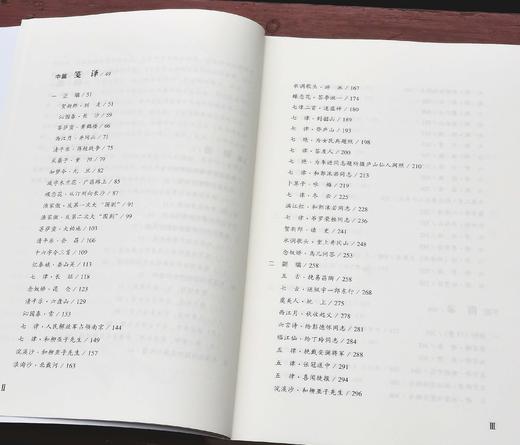 中篇 笺译 / 49
一 正编 / 51
贺新郎·别友 / 51
沁园春·长沙 / 59
菩萨蛮·黄鹤楼 / 66
西江月·井冈山 / 71
清平乐·蒋桂战争 / 76
采桑子·重阳 / 80
如梦令·元旦 / 82
减字木兰花·广昌路上 / 85
蝶恋花·从汀州向长沙 / 87
渔家傲·反第一次大“围剿” / 91
渔家傲·反第二次大“围剿” / 99
菩萨蛮·大柏地 / 103
清平乐·会昌 / 106
十六字令三首 / 109
忆秦娥·娄山关 / 113
七律·长征 / 118
念奴娇·昆仑 / 123
清平乐·六盘山 / 129
沁园春·雪 / 133
七律·人民解放军占领南京 / 144
七律·和柳亚子先生 / 149
浣溪沙·和柳亚子先生 / 157
浪淘沙·北戴河 / 163
II
水调歌头·游泳 / 167
蝶恋花·答李淑一 / 174
七律二首·送瘟神 / 181
七律·到韶山 / 189
七律·登庐山 / 193
七绝·为女民兵题照 / 198
七律·答友人 / 200
七绝·为李进同志题所摄庐山仙人洞照 / 210
七律·和郭沫若同志 / 213
卜算子·咏梅 / 219
七律·冬云 / 225
满江红·和郭沫若同志 / 228
七律·吊罗荣桓同志 / 236
贺新郎·读史 / 241
水调歌头·重上井冈山 / 248
念奴娇·鸟儿问答 / 253
二 副编 / 258
五古·挽易昌陶 / 258
七古·送纵宇一郎东行 / 268
虞美人·枕上 / 275
西江月·秋收起义 / 278
六言诗·给彭德怀同志 / 281
临江仙·给丁玲同志 / 284
五律·挽戴安澜将军 / 287
五律·张冠道中 / 291
五律·喜闻捷报 / 294
浣溪沙·和柳亚子先生 / 296
III